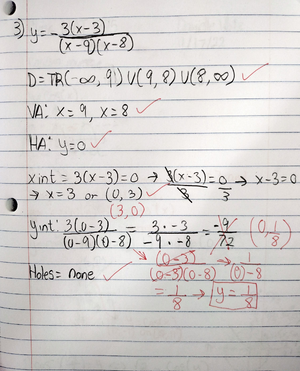 3) y= -3(x-3)/(x-9)(x-8)
D=TR(-∞, 9) U(9,8) U(8,∞) ✓
VA: x=9, x=8 ✓
HA: y=0 ✓
x int = 3(x-3)=0 → 3(x-3)/3=0/3 → x-3=0
→ x=3 or (0,3) ✓
(3,0)
yint: 3(0-3)/(0-9)(0-8) = 3·-3/-9·-8 = -9/72 (0,1/8)
Holes= none ✓ (0-3)/(0-3)(0-8) → 1/(0)-8
= 1/8 → y=1/8